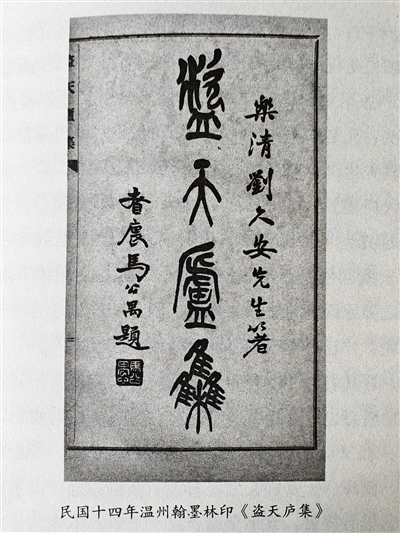 樂清劉久安先生箸
盜天廬集
馬公禺題
盜天廬集
民国十四年温州翰墨林印《盗天庐集》